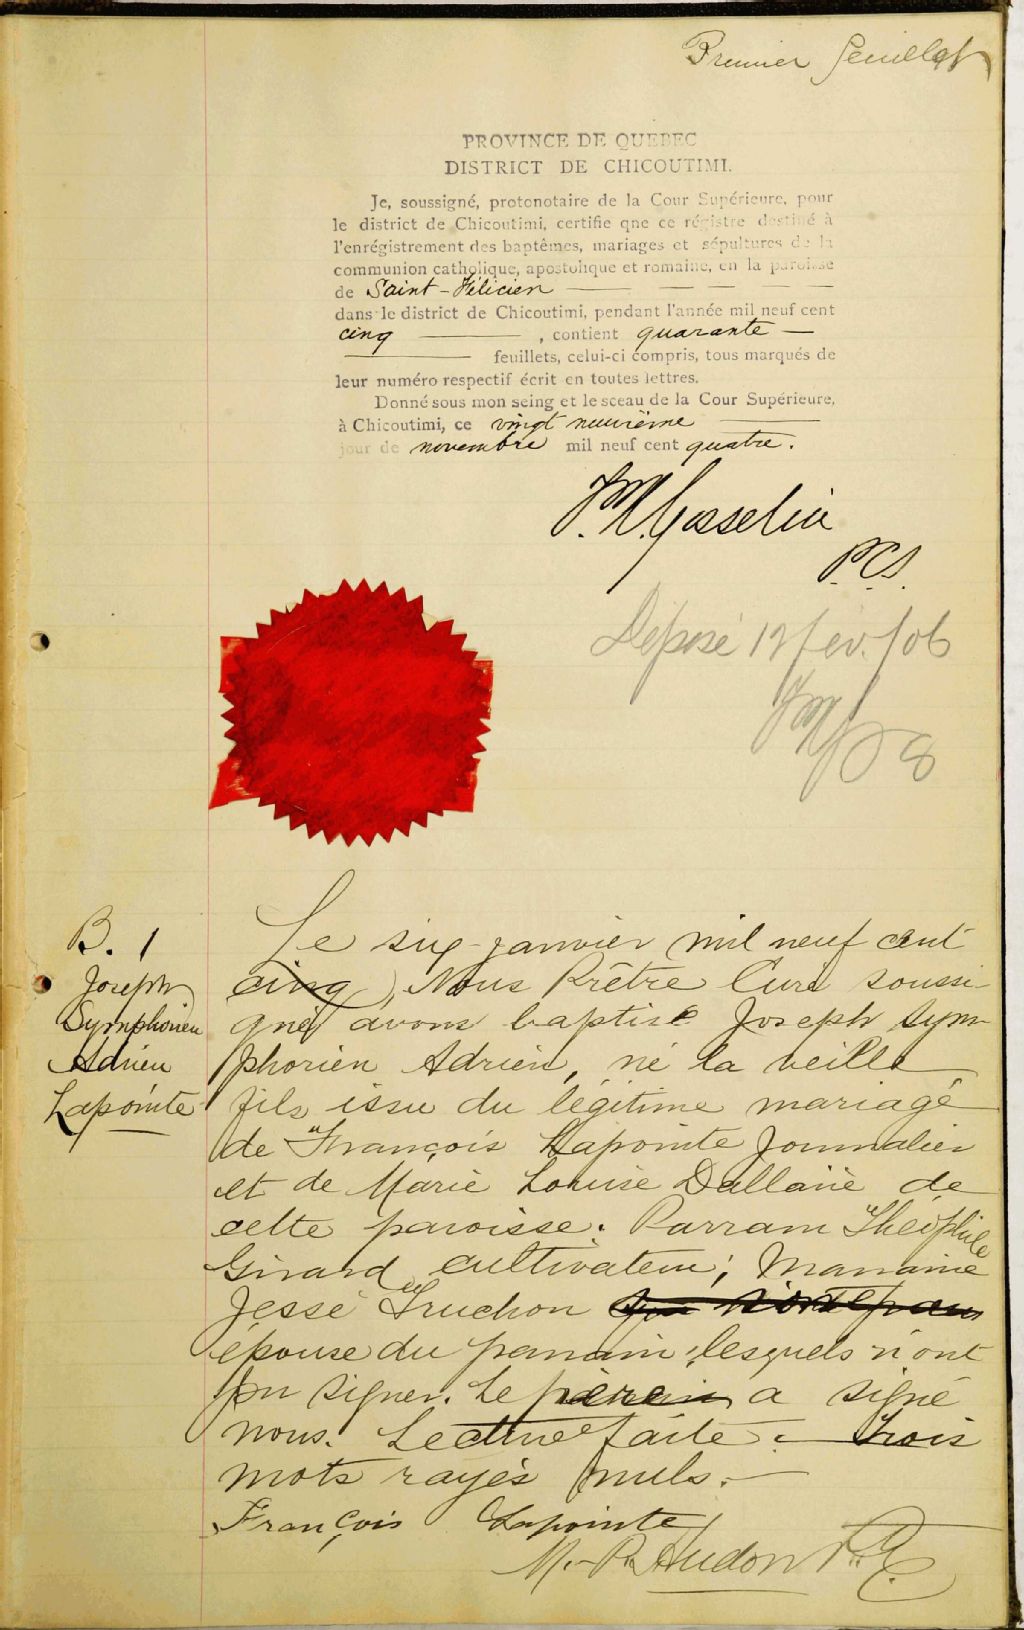 Premier feuillet
PROVINCE DE QUEBEC
DISTRICT DE CHICOUTIMI.
Je, soussigné, protonotaire de la Cour Supérieure, pour
le district de Chicoutimi, certifie qne ce régistre destiné à
l'enrégistrement des baptêmes, mariages et sépultures de la
communion catholique, apostolique et romaine, en la paroisse
de Saint-Félicien
dans le district de Chicoutimi, pendant l'année mil neuf cent
cinq , contient quarante
feuillets, celui-ci compris, tous marqués de
leur numéro respectif écrit en toutes lettres.
Donné sous mon seing et le sceau de la Cour Supérieure,
à Chicoutimi, ce vingt neuvième
jour de novembre mil neuf cent quatre.
Gosselin
P.C.S.
Déposé 12 fév./06
B. 1
Joseph
Symphorien
Adrien
Lapointe
Le six janvier mil neuf cent
cinq, Nous Prêtre Curé soussi-
gné avons baptisé Joseph Sym-
phorien Adrien, né la veille
fils issu du légitime mariage
de François Lapointe Journalier
et de Marie Louise Dallaire de
cette paroisse. Parrain Théophile
Girard cultivateur; Marraine
Jessé Truchon
épouse du parrain, lesquels n'ont
pu signer. Le père a signé
nous. Lecture faite. Trois
mots rayés nuls.
François Lapointe
Hudon